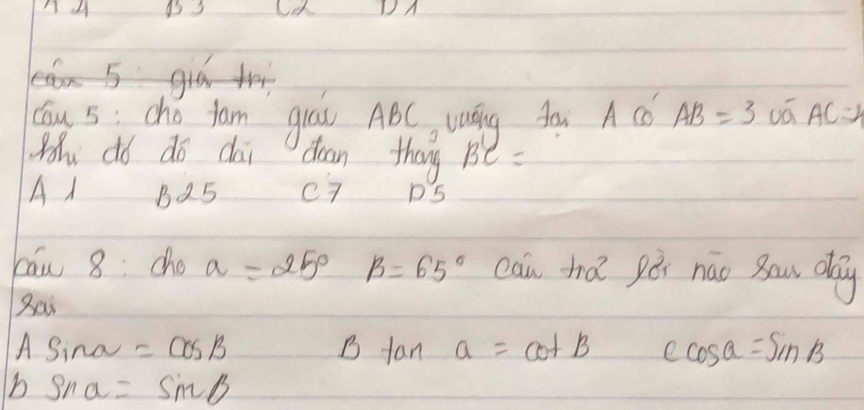 A 4 B 3 C 2 D 1
câu 5: giá trị
Câu 5: cho tam giác ABC vuông tại A có AB = 3 và AC =
khi đó độ dài đoạn thẳng BC =
A 1 B 25 C 7 D 5
câu 8: cho a = 25° B = 65° câu trả lời nào sau đây
sai
A sina = cosB B tan a = cot B C cosa = sinB
D sn a = sin B